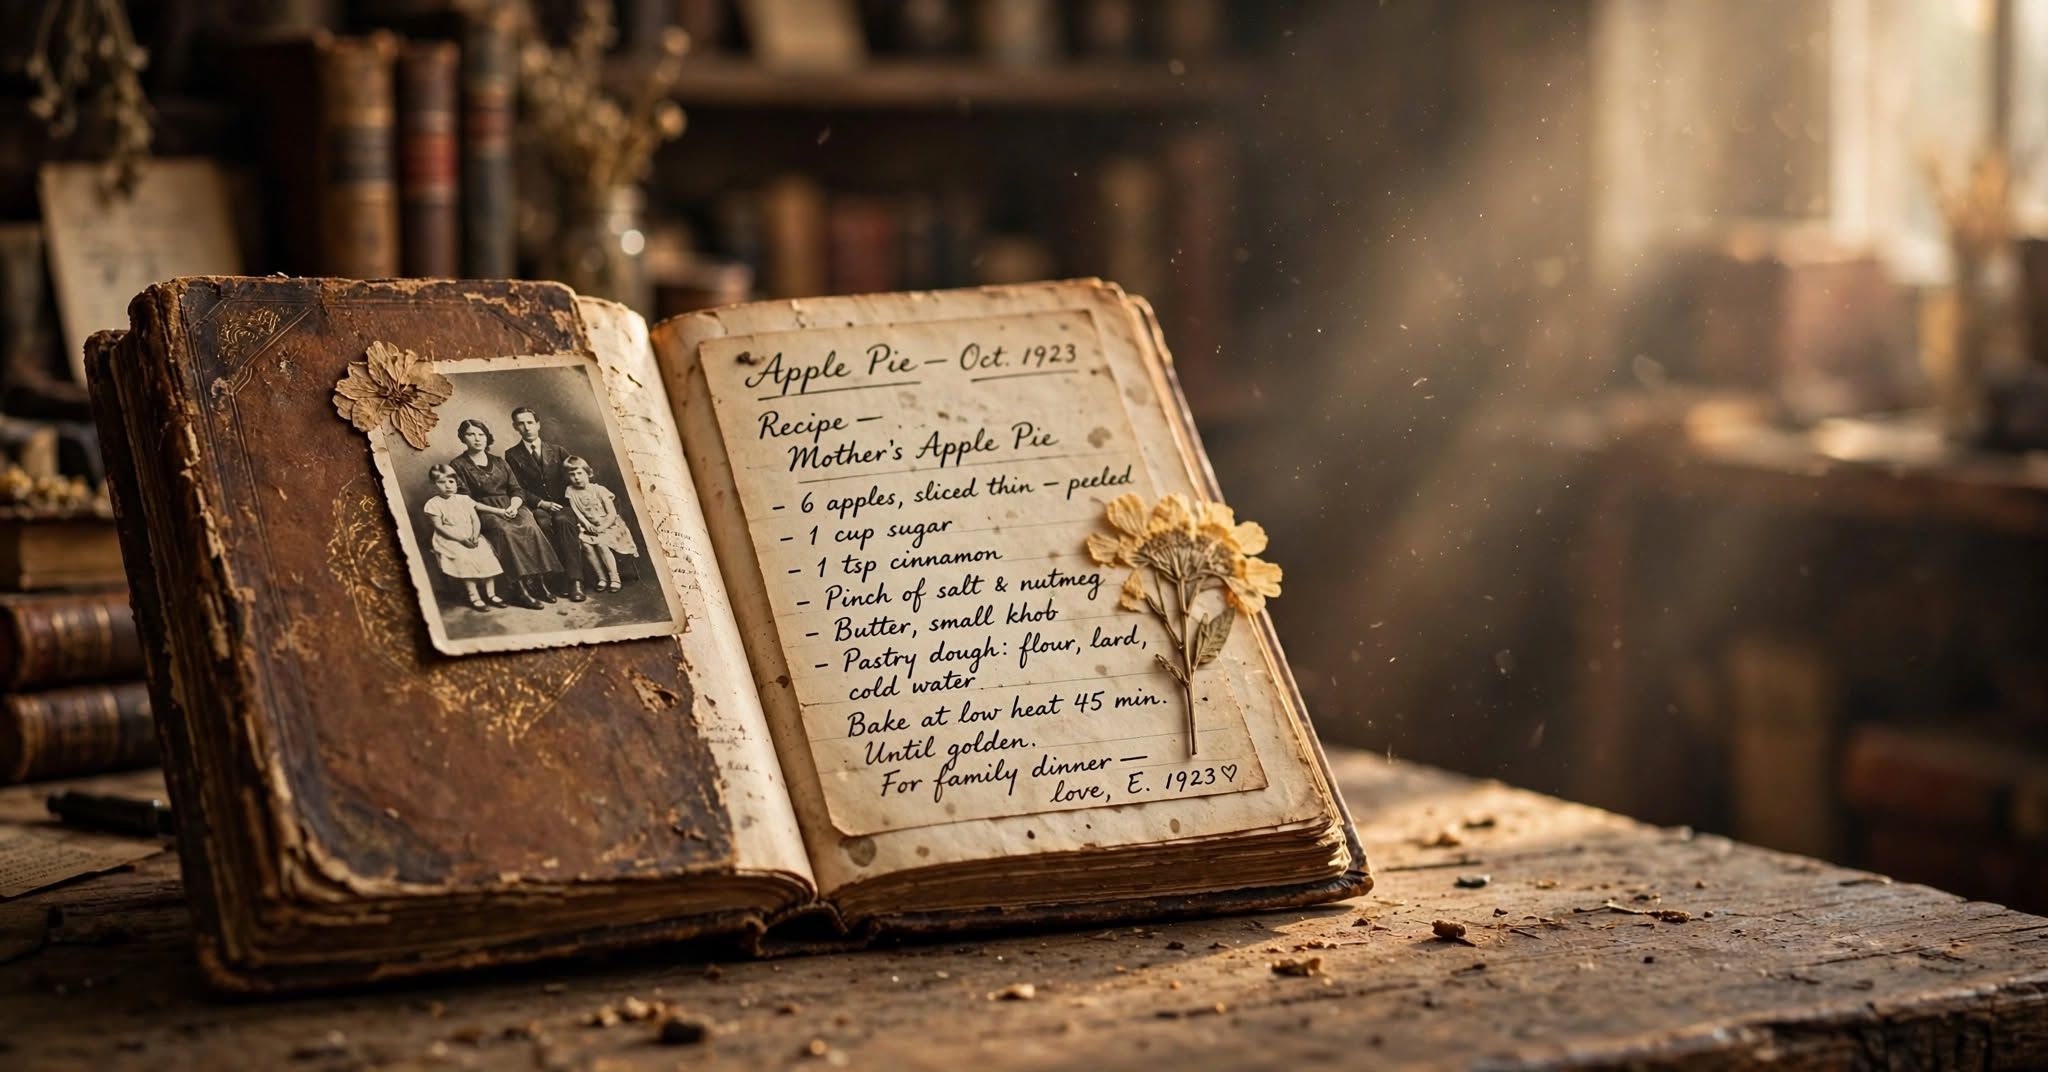 Apple Pie — Oct. 1923
Recipe —
Mother's Apple Pie
- 6 apples, sliced thin — peeled
- 1 cup sugar
- 1 tsp cinnamon
- Pinch of salt & nutmeg
- Butter, small khob
- Pastry dough: flour, lard,
cold water
Bake at low heat 45 min.
Until golden.
For family dinner —
love, E. 1923♡